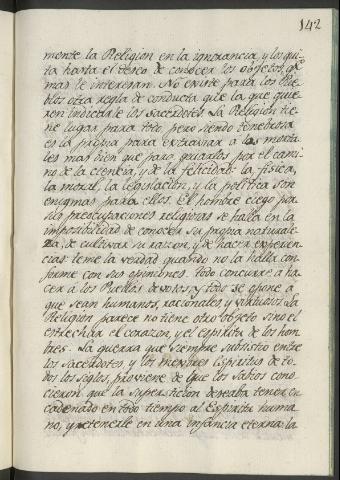 142
mente la Religion en la ignorancia, y los qui-
ta hasta el deseo de conocer los objetos, qe
mas le interesan. No existe para los Pue-
blos otra regla de conducta que la que quie-
ren indicarle los Sacerdotes. La Religion tie-
ne lugar para todo, pero siendo tenebrosa
es la propia para extraviar a los morta-
les mas bien que para guiarlos por el cami-
no de la ciencia, y de la felicidad: la fisica,
la moral, la legislacion, y la politica son
enigmas para ellos. El hombre ciego por
sus preocupaciones religiosas se halla en la
imposibilidad de conocer su propia naturale-
za, de cultivar su razon, y de hacer experien-
cias: teme la verdad quando no la halla con-
forme con sus opiniones. Todo concurre a ha-
cer a los Pueblos devotos, y todo se opone á
que sean humanos, racionales, y virtuosos. La
Religion parece no tiene otro objeto sino el
estrechar el corazon, y el espiritu de los hom-
bres. La guerra que siempre subsistio entre
los Sacerdotes, y los mejores Espiritus de to-
dos los siglos, proviene de que los sabios cono-
cieron que la supersticion deseaba tener en-
cadenado en todo tiempo al Espiritu huma-
no, y retenerle en una infancia eterna: la